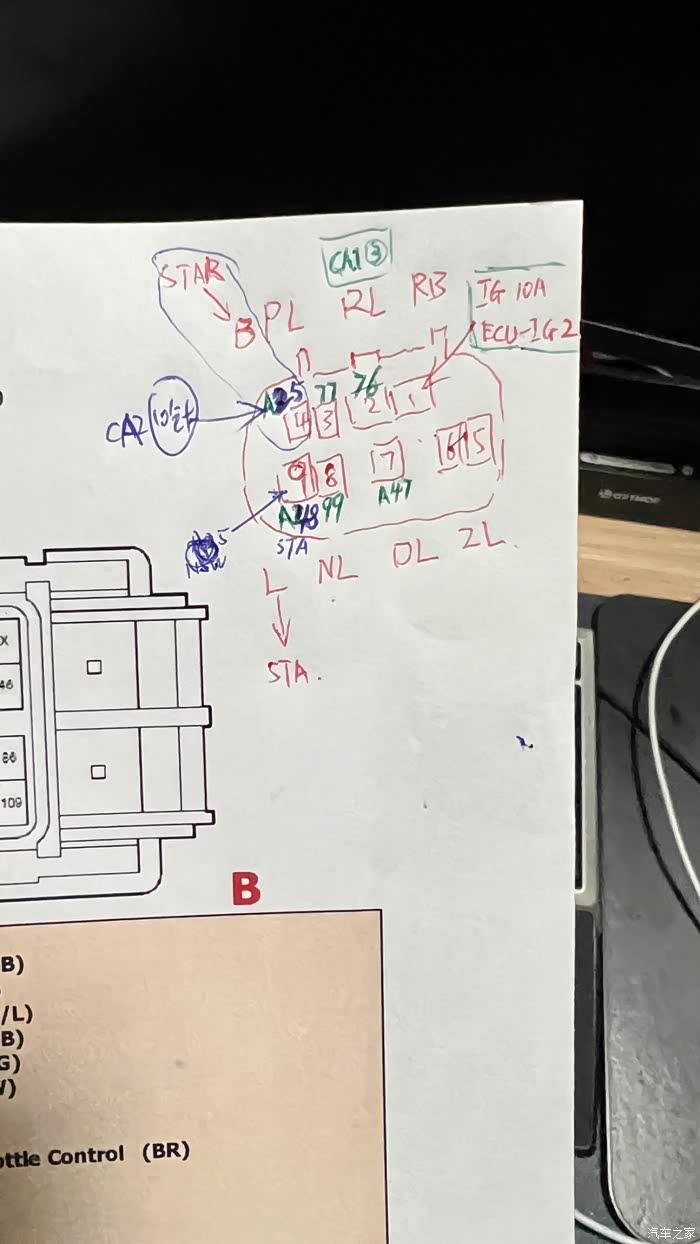 CA1 ③
STAR
B
PL
RL
RB
IG 10A
ECU-IG2
77
76
4
3
2
1
CA2
9
8
7
6
5
99
A47
STA
L
NL
DL
2L
STA.
X
46
86
109
B
B)
/L)
B)
G)
ottle Control (BR)
汽车之家